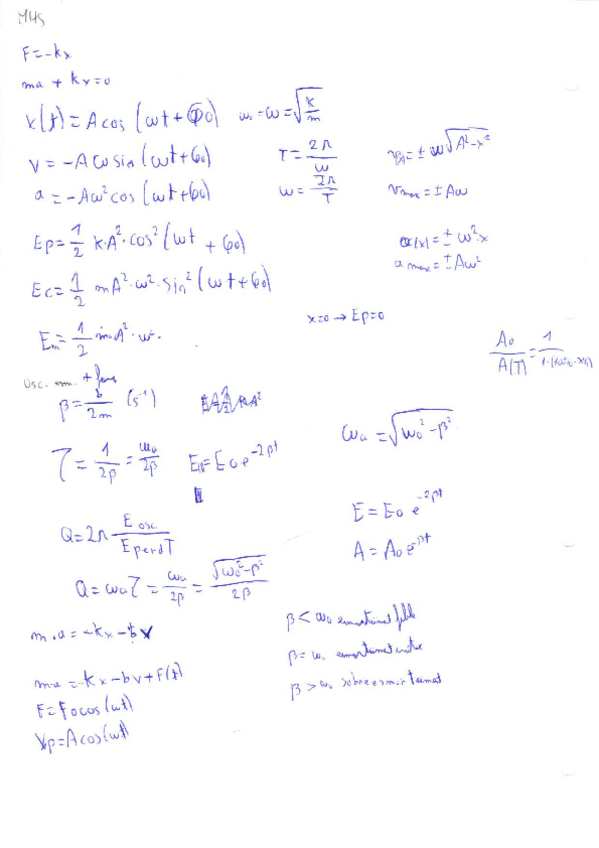 MHS
F=-kx
ma + kx=0
x(t)=A cos (ωt+φ0)   ω0=ω=√(k/m)
v = -Aω sin (ωt+φ0)   T = 2π/ω   v(x)= ± ω√(A²-x²)
a = -Aω² cos (ωt+φ0)   ω = 2π/T   vmax = ± Aω
Ep = 1/2 k·A²·cos² (ωt + φ0)   a(x) = ± ω²·x
a max = ± Aω²
Ec = 1/2 mA²·ω²·sin² (ωt+φ0)
x=0 → Ep=0
Em = 1/2 m·A²·ω²
A0/A(T) = 1/
Osc. + 
β = b/2m (s⁻¹)
ωa = √(ω0²-β²)
τ = 1/2β = ω0/2β   E = E0 e^-2βt
E = E0 e^-2βt
Q = 2π E osc./E perd T
A = A0 e^-βt
Q = ωa τ = ωa/2β = √(ω0²-β²)/2β
m·a = -kx - bv
β < ω0 esmorteiment feble
β = ω0 esmorteiment
β > ω0 sobreesmorteiment
ma = -kx - bv + F(t)
F = F0 cos(ωt)
xp = A cos(ωt)